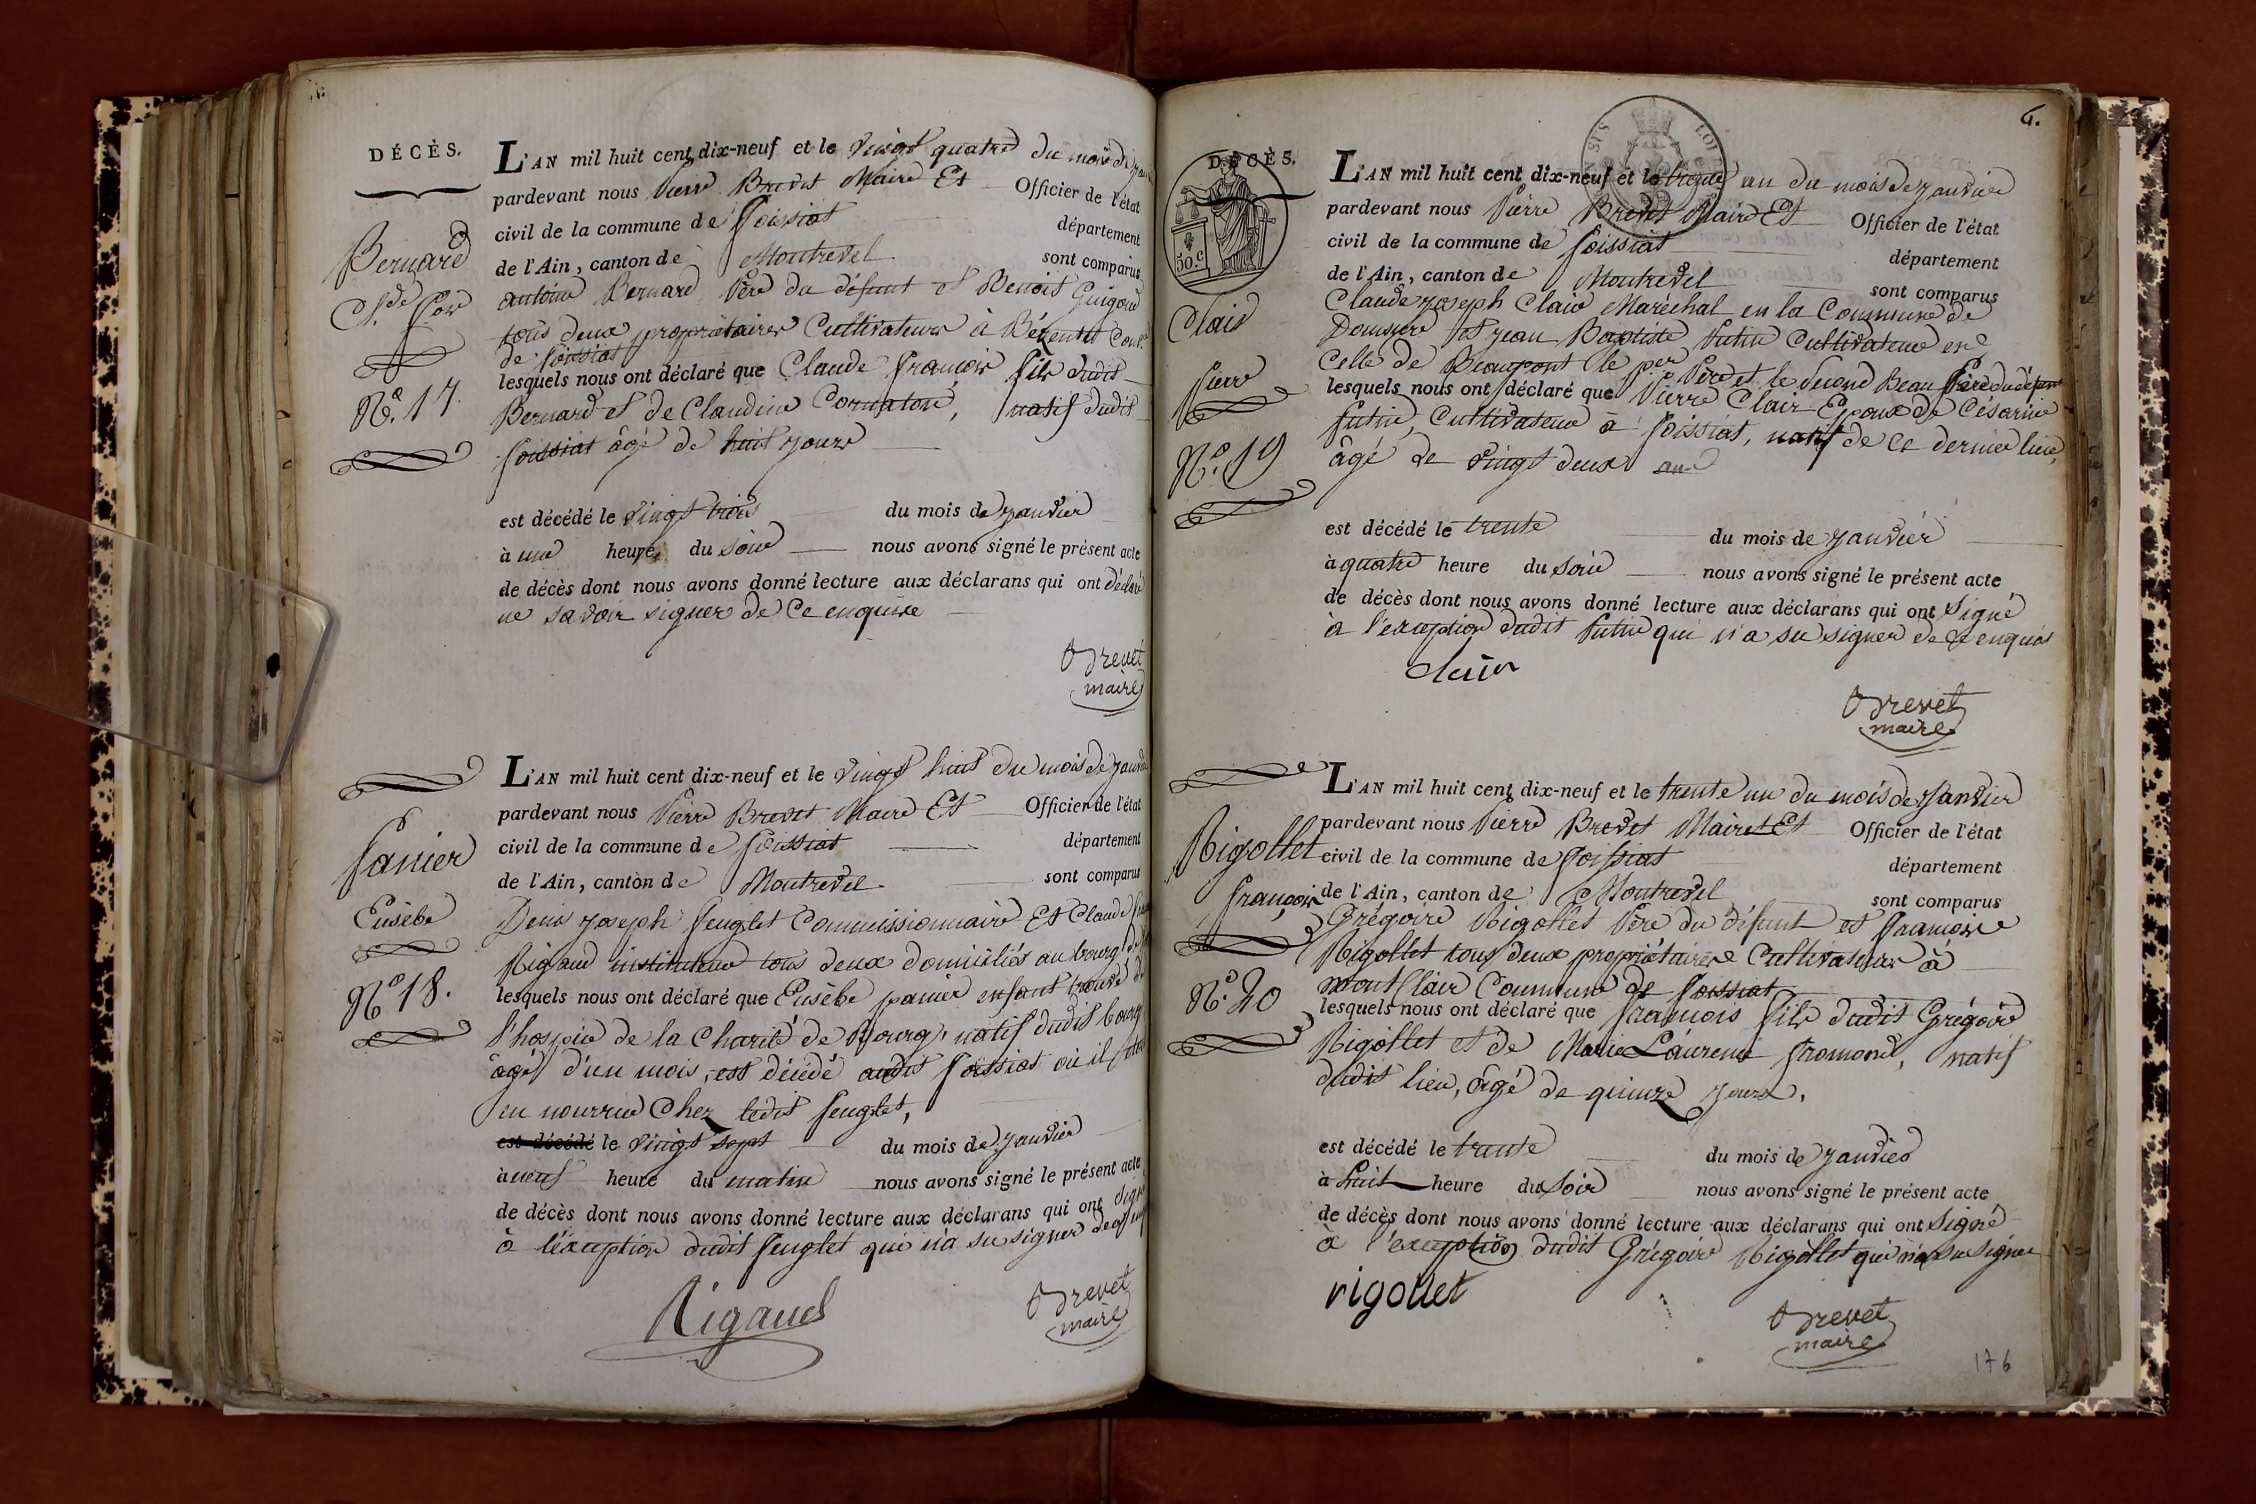 DÉCÈS.
Bernard
Cl.de Fois
N.° 17.
L'AN mil huit cent dix-neuf et le vingt quatre du mois de
pardevant nous Pierre Brevet Maire Et Officier de l'état
civil de la commune de foissiat département
de l'Ain, canton de Montrevel sont comparus
antoine Bernard Père du défunt et Benoit Guigoud
tous deux propriétaires Cultivateurs à
de foissiat
lesquels nous ont déclaré que Claude françois fils dudit
Bernard et de Claudine Cornaton, natif dudit
foissiat âgé de huit jours
est décédé le vingt trois du mois de janvier
à une heure du soir nous avons signé le présent acte
de décès dont nous avons donné lecture aux déclarans qui ont déclaré
ne savoir signer de ce enquise
Brevet
maire
Panier
Eusèbe
N.° 18.
L'AN mil huit cent dix-neuf et le vingt huit du mois de janvier
pardevant nous Pierre Brevet Maire Et Officier de l'état
civil de la commune de foissiat département
de l'Ain, canton de Montrevel sont comparus
Denis joseph feuglet Commissionnaire Et Claude
Rigaud instituteur tous deux domiciliés au bourg de
lesquels nous ont déclaré que Eusèbe panier enfant trouvé de
l'hospice de la Charité de Bourg, natif dudit bourg
âgé d'un mois, est décédé audit foissiat où il
en nourrice Chez ledit feuglet,
est décédé le vingt sept du mois de janvier
à neuf heure du matin nous avons signé le présent acte
de décès dont nous avons donné lecture aux déclarans qui ont signé
à l'exception dudit feuglet qui n'a su signer de ce
Rigaud
Brevet
maire
6.
DÉCÈS.
50.c
LOI
Clair
Pierre
N.° 19
L'AN mil huit cent dix-neuf et le trente un du mois de janvier
pardevant nous Pierre Brevet Maire Et Officier de l'état
civil de la commune de foissiat département
de l'Ain, canton de Montrevel sont comparus
Claude joseph Clair Maréchal en la Commune de
Domsure et jean Baptiste Putin Cultivateur en
Celle de Beaupont le per Père et le second Beau Père du défunt
lesquels nous ont déclaré que Pierre Clair Epoux de Césarine
Putin, Cultivateur à foissiat, natif de ce dernier lieu,
âgé de vingt deux ans
est décédé le trente du mois de janvier
à quatre heure du soir nous avons signé le présent acte
de décès dont nous avons donné lecture aux déclarans qui ont signé
à l'exception dudit Putin qui n'a su signer de ce enquis
Clair
Brevet
maire
Rigollet
françois
N.° 20
L'AN mil huit cent dix-neuf et le trente un du mois de janvier
pardevant nous Pierre Brevet Maire Et Officier de l'état
civil de la commune de foissiat département
de l'Ain, canton de Montrevel sont comparus
Grégoire Rigollet Père du défunt et françois
Rigollet tous deux propriétaires Cultivateurs à
Commune de foissiat
lesquels nous ont déclaré que françois fils dudit Grégoire
Rigollet et de Marie Laurence fromond, natif
dudit lieu, âgé de quinze jours,
est décédé le trente du mois de janvier
à huit heure du soir nous avons signé le présent acte
de décès dont nous avons donné lecture aux déclarans qui ont signé
à l'exception dudit Grégoire Rigollet qui n'a su signer
rigollet
Brevet
maire
176